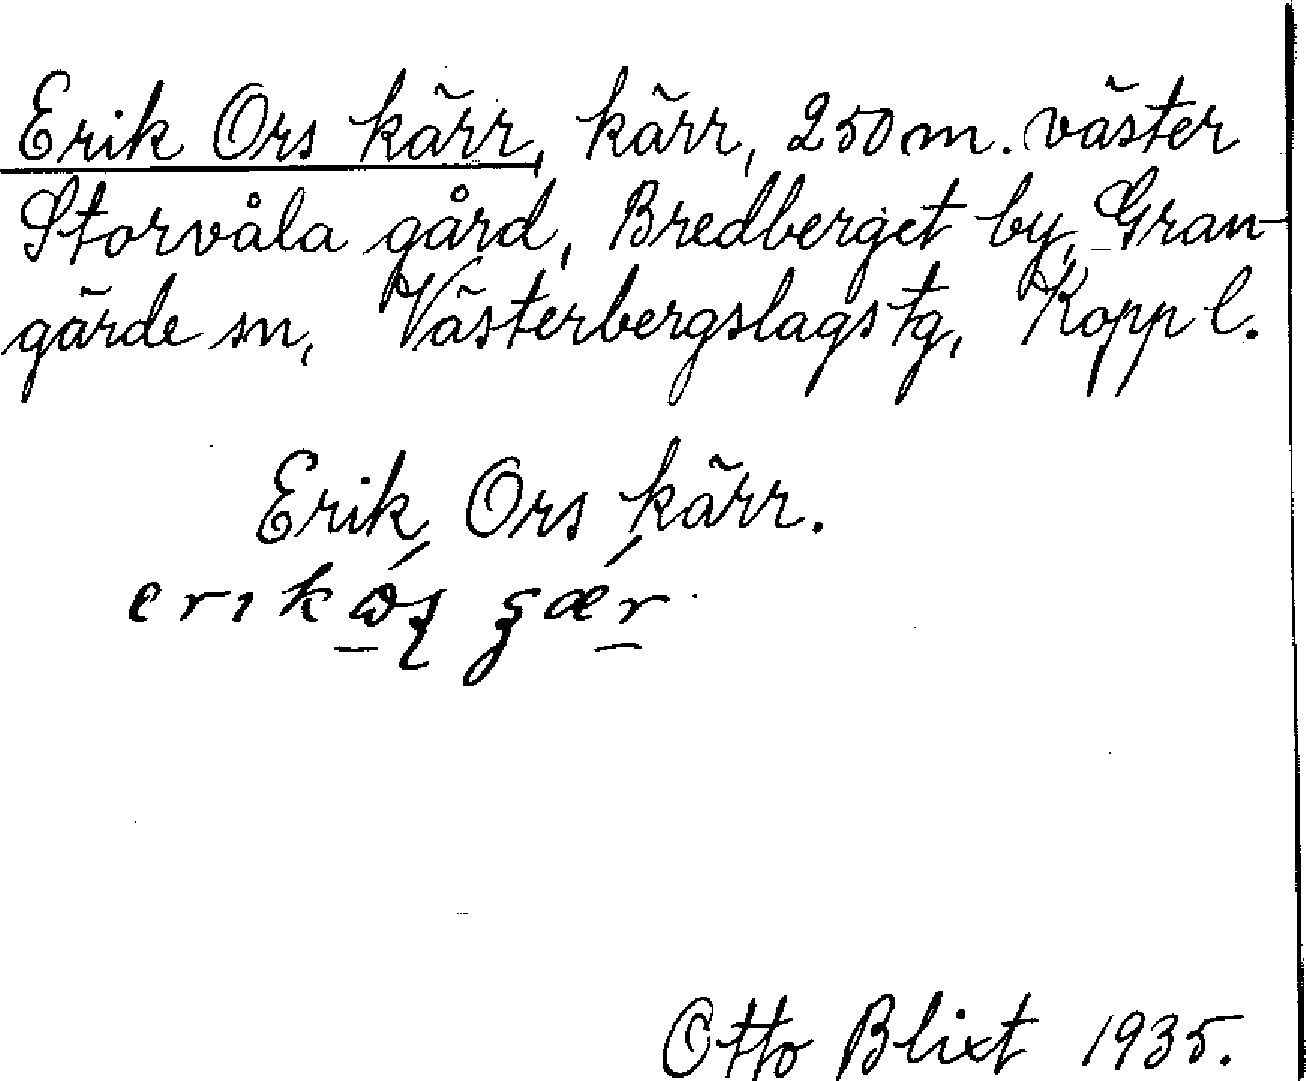 Erik Ors kärr, kärr, 250 m. väster
Storvåla gård, Bredberget by, Gran-
gärde sn, Västerbergslags tg, Kopp l.
Erik Ors kärr.
erik
Otto Blixt 1935.